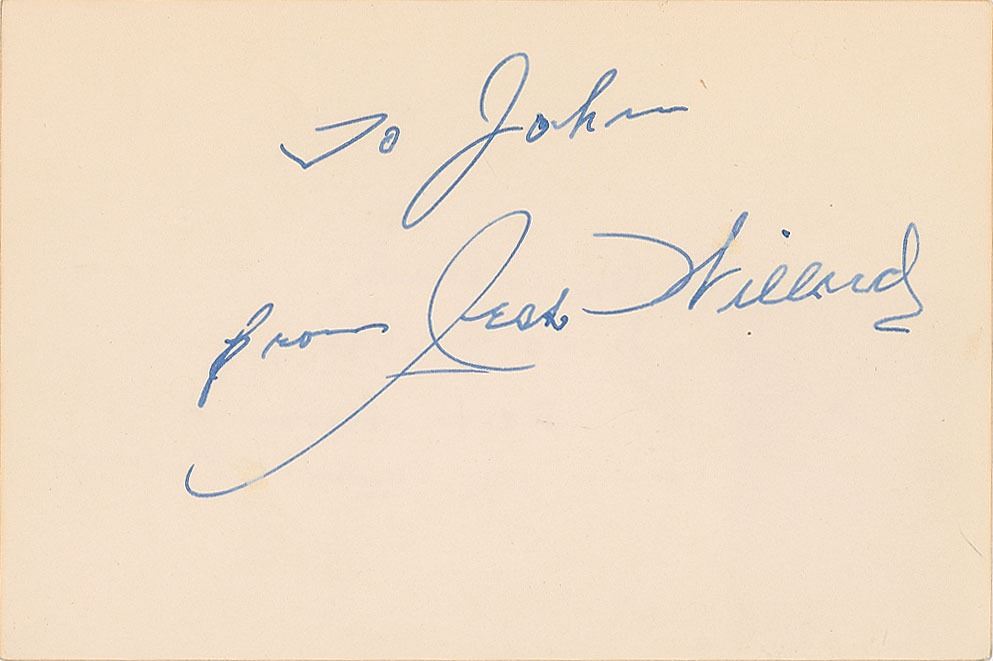 To John
from Jess Willard